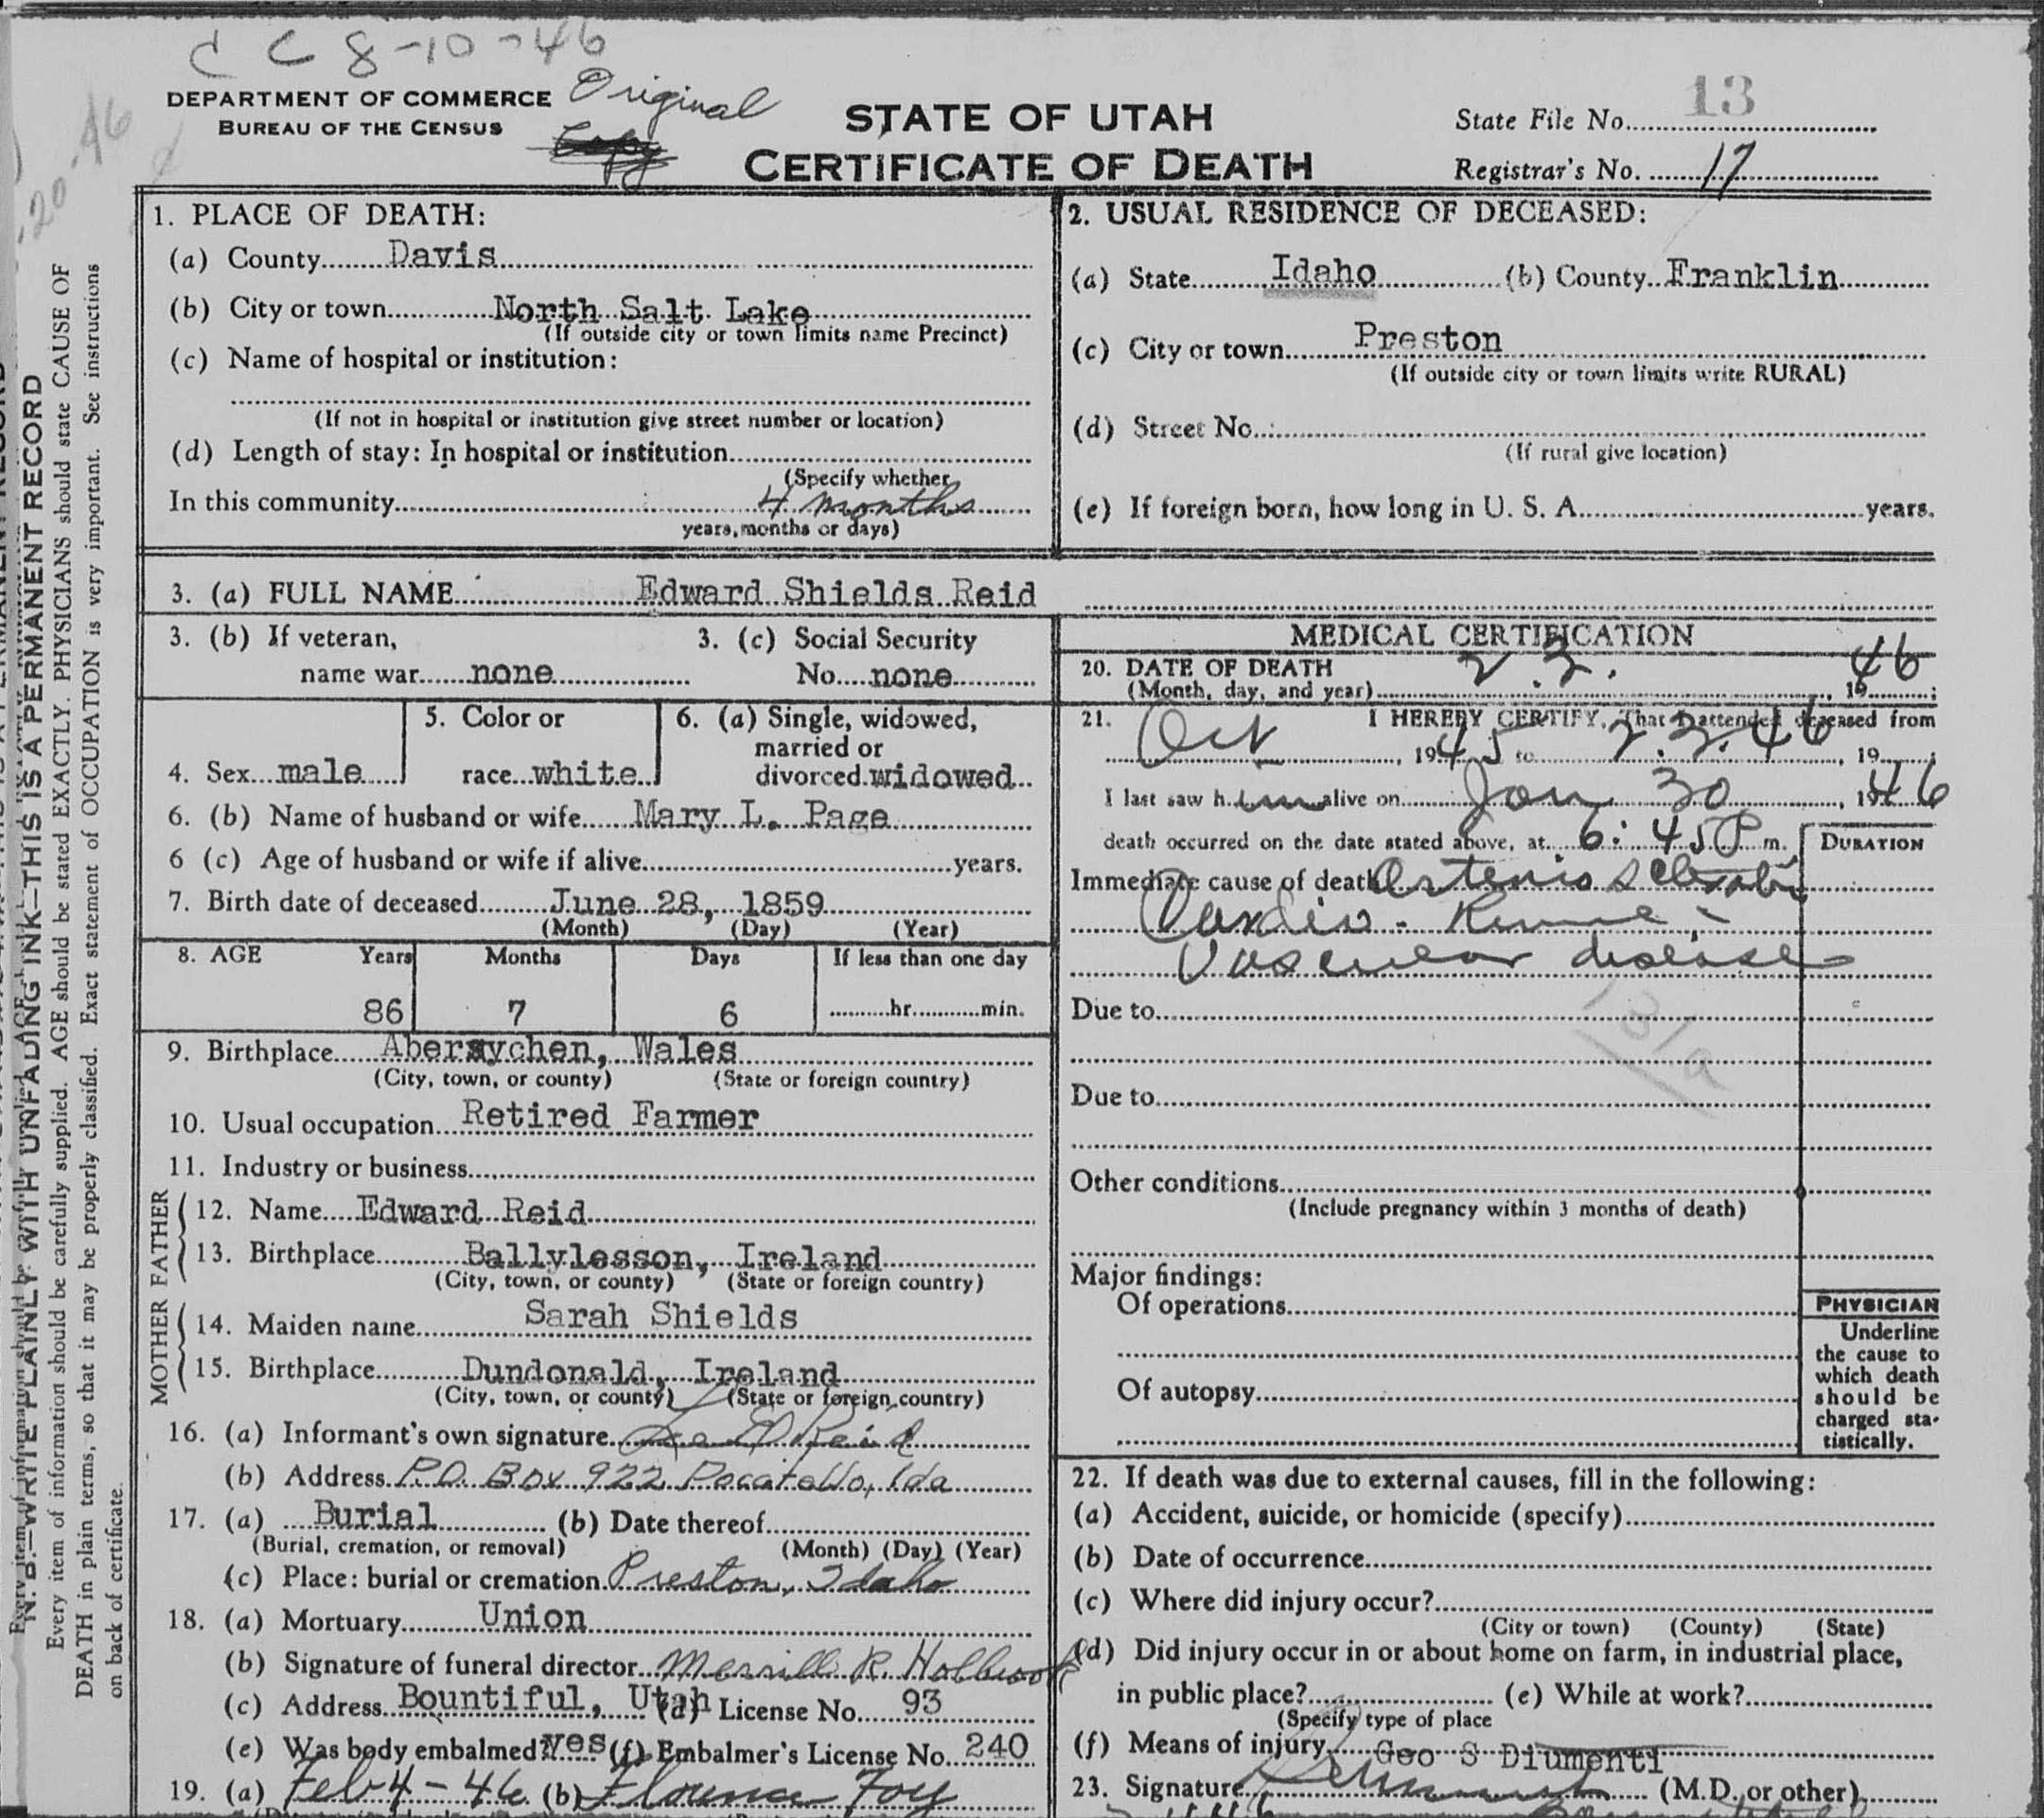 C C 8-10-46
DEPARTMENT OF COMMERCE
BUREAU OF THE CENSUS
Original
Copy
STATE OF UTAH
CERTIFICATE OF DEATH
State File No. 13
Registrar's No. 17
1. PLACE OF DEATH:
(a) County Davis
(b) City or town North Salt Lake
(If outside city or town limits name Precinct)
(c) Name of hospital or institution:
(If not in hospital or institution give street number or location)
(d) Length of stay: In hospital or institution
(Specify whether
In this community 4 months
years, months or days)
2. USUAL RESIDENCE OF DECEASED:
(a) State Idaho (b) County Franklin
(c) City or town Preston
(If outside city or town limits write RURAL)
(d) Street No.
(If rural give location)
(e) If foreign born, how long in U. S. A. years.
3. (a) FULL NAME Edward Shields Reid
3. (b) If veteran, 3. (c) Social Security
name war none No. none
4. Sex male
5. Color or
race white
6. (a) Single, widowed,
married or
divorced widowed
6. (b) Name of husband or wife Mary L. Page
6 (c) Age of husband or wife if alive years.
7. Birth date of deceased June 28, 1859
(Month) (Day) (Year)
8. AGE Years Months Days If less than one day
86 7 6 hr. min.
9. Birthplace Abersychen, Wales
(City, town, or county) (State or foreign country)
10. Usual occupation Retired Farmer
11. Industry or business
FATHER
12. Name Edward Reid
13. Birthplace Ballylesson, Ireland
(City, town, or county) (State or foreign country)
MOTHER
14. Maiden name Sarah Shields
15. Birthplace Dundonald, Ireland
(City, town, or county) (State or foreign country)
16. (a) Informant's own signature Reid
(b) Address P.O. Box 922 Pocatello, Ida
17. (a) Burial (b) Date thereof
(Burial, cremation, or removal) (Month) (Day) (Year)
(c) Place: burial or cremation Preston, Idaho
18. (a) Mortuary Union
(b) Signature of funeral director Merrill R. Holbrook
(c) Address Bountiful, Utah (d) License No. 93
(e) Was body embalmed? yes (f) Embalmer's License No. 240
19. (a) Feb 4-46 (b) Florence Foy
MEDICAL CERTIFICATION
20. DATE OF DEATH
(Month, day, and year) 2.2. 1946;
21. I HEREBY CERTIFY, That I attended deceased from
Oct, 1945 to 2.2.46, 19;
I last saw him alive on Jan 30, 1946
death occurred on the date stated above, at 6:45 P m.
DURATION
Immediate cause of death Arteriosclerotic
Cardio-Renal-
Vascular disease
131a
Due to
Due to
Other conditions
(Include pregnancy within 3 months of death)
Major findings:
Of operations
Of autopsy
PHYSICIAN
Underline
the cause to
which death
should be
charged sta-
tistically.
22. If death was due to external causes, fill in the following:
(a) Accident, suicide, or homicide (specify)
(b) Date of occurrence
(c) Where did injury occur?
(City or town) (County) (State)
(d) Did injury occur in or about home on farm, in industrial place,
in public place? (e) While at work?
(Specify type of place
(f) Means of injury Geo S Diumenti
23. Signature (M.D. or other)
N. B.—WRITE PLAINLY WITH UNFADING INK—THIS IS A PERMANENT RECORD
Every item of information should be carefully supplied. AGE should be stated EXACTLY. PHYSICIANS should state CAUSE OF
DEATH in plain terms, so that it may be properly classified. Exact statement of OCCUPATION is very important. See instructions
on back of certificate.